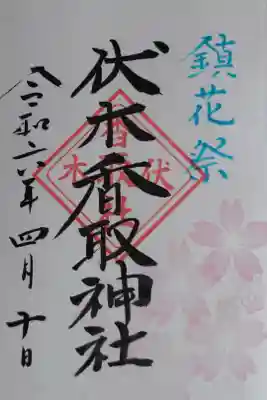 鎮花祭
伏木香取神社
令和六年四月十日